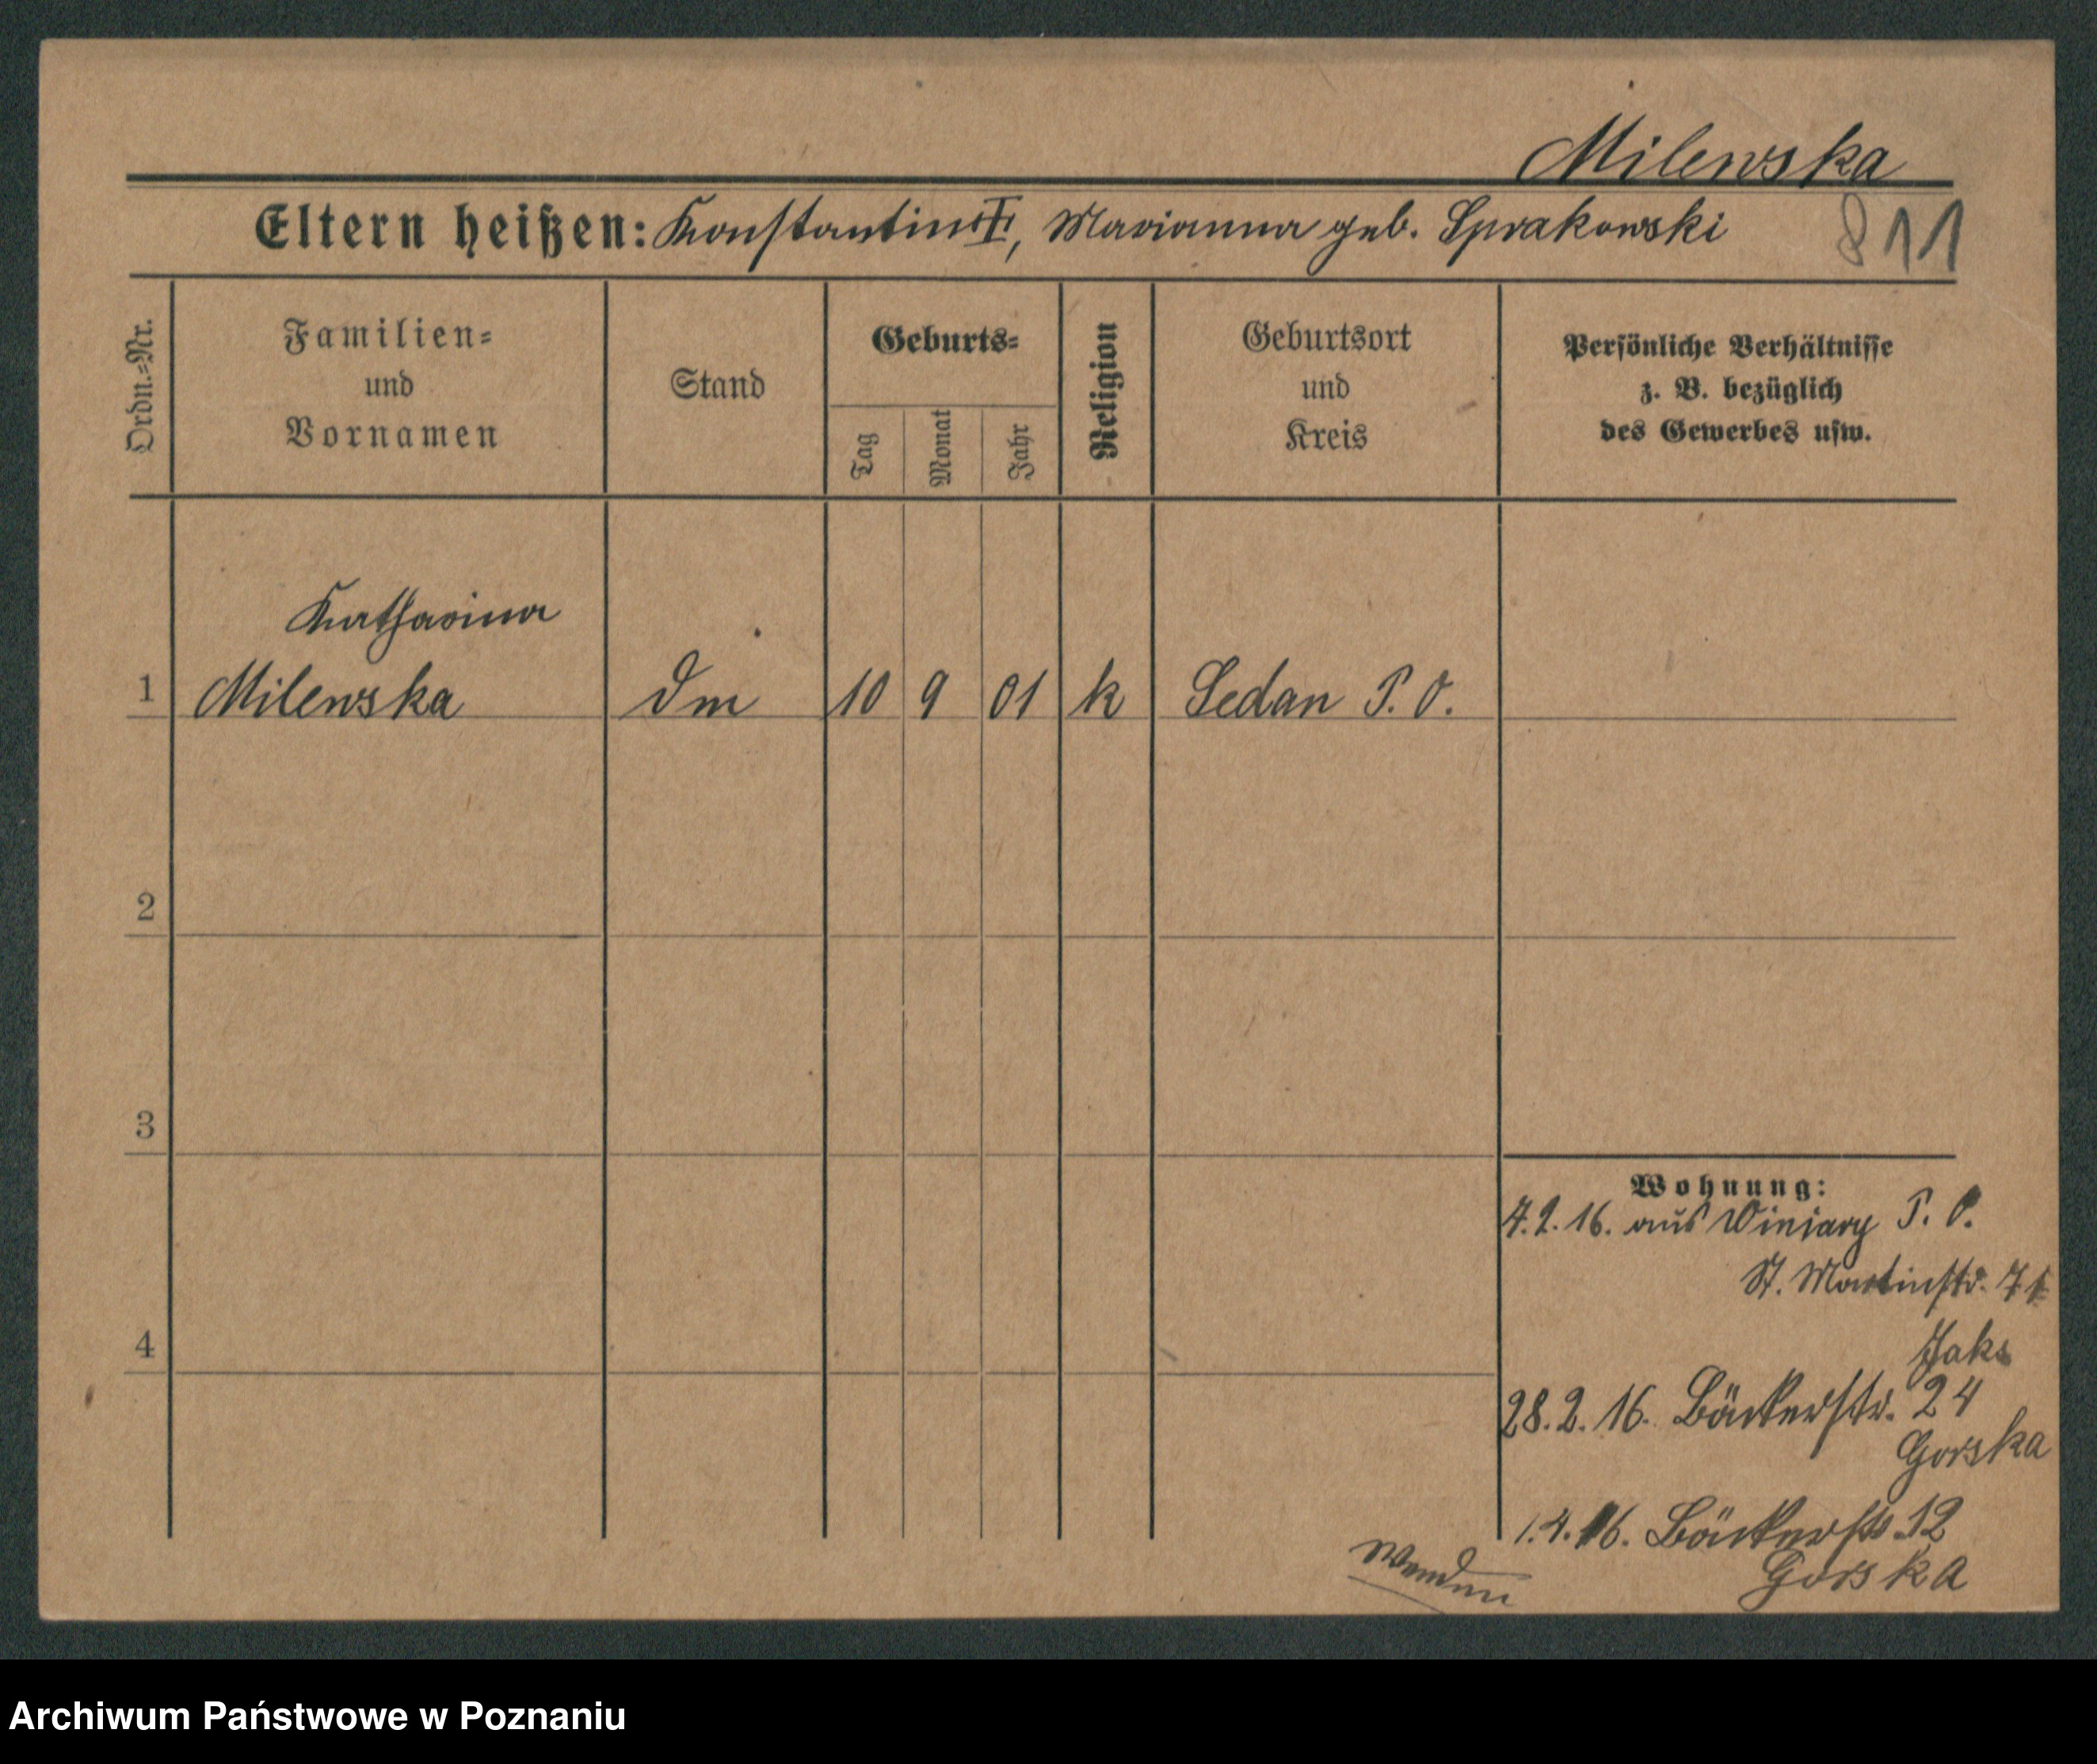 Milewska
Eltern heißen: Konstantin †, Marianna geb. Sprakowski
811
Ordn.-Nr.
Familien-
und
Vornamen
Stand
Geburts-
Tag
Monat
Jahr
Religion
Geburtsort
und
Kreis
Persönliche Verhältnisse
z. B. bezüglich
des Gewerbes usw.
Katharina
1 Milewska Dm 10 9 01 k Sedan P. O.
2
3
4
Wohnung:
7.2.16. aus Winiary P. O.
St. Martinstr. 71
28.2.16. Bäckerstr. 24
Gorska
1.4.16. Bäckerstr 12
Gorska
Wenden
Archiwum Państwowe w Poznaniu